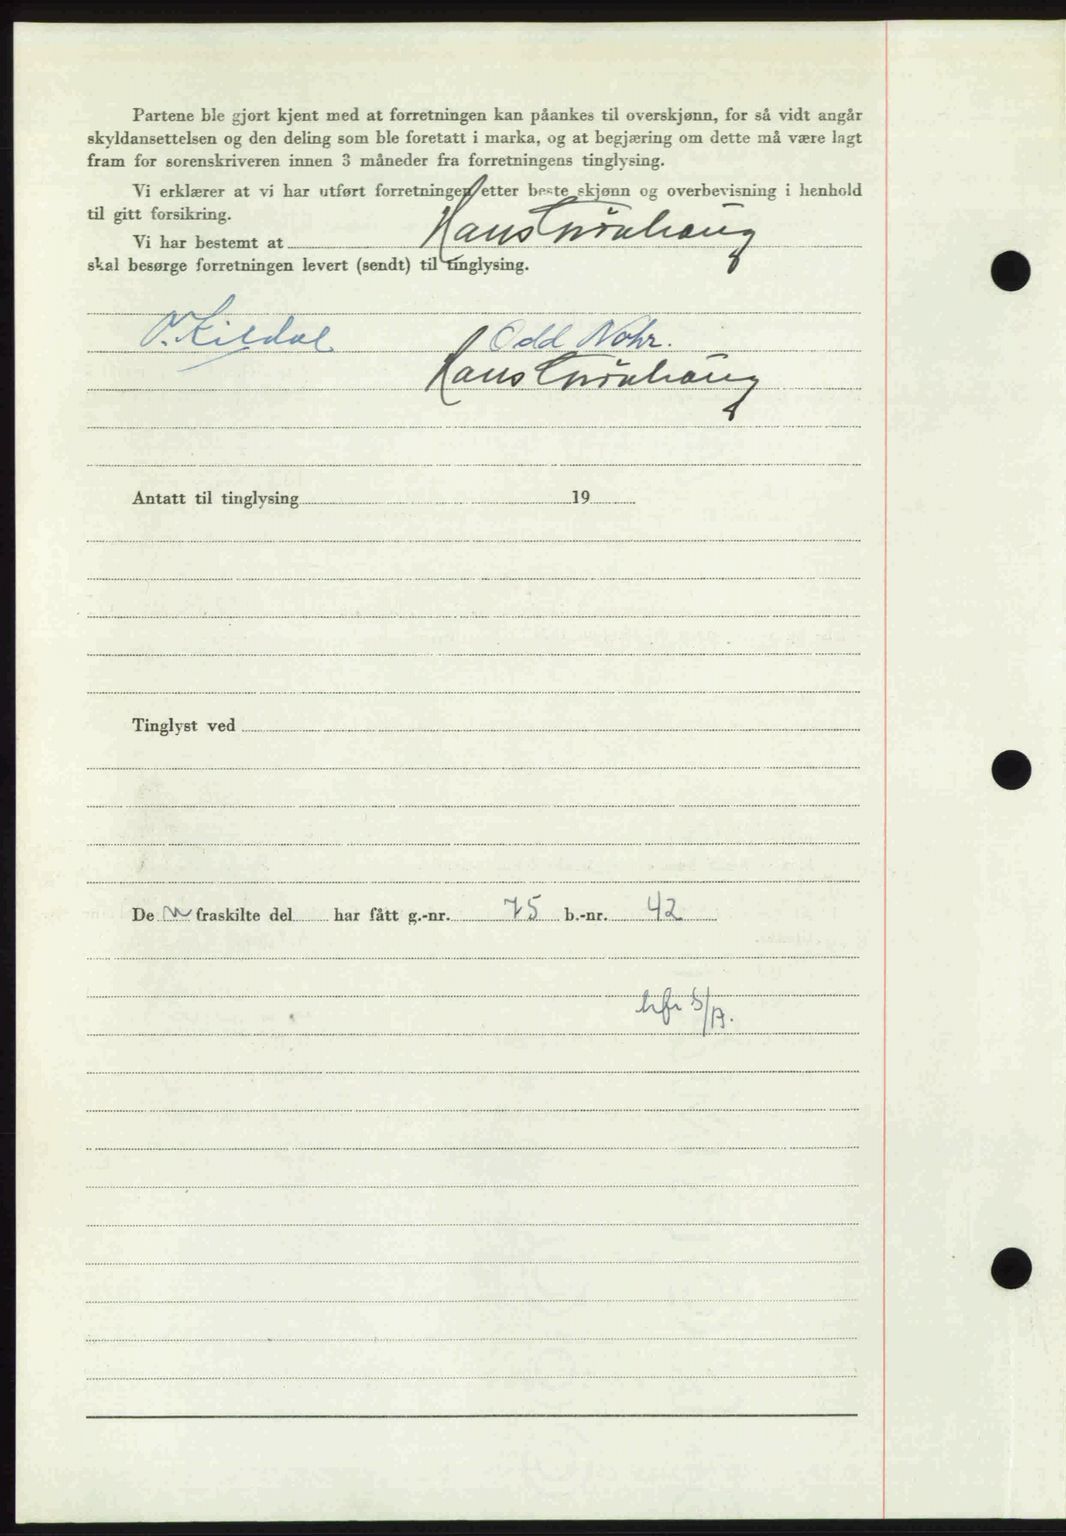 Partene ble gjort kjent med at forretningen kan påankes til overskjønn, for så vidt angår
skyldansettelsen og den deling som ble foretatt i marka, og at begjæring om dette må være lagt
fram for sorenskriveren innen 3 måneder fra forretningens tinglysing.
Vi erklærer at vi har utført forretningen etter beste skjønn og overbevisning i henhold
til gitt forsikring.
Vi har bestemt at Hans
skal besørge forretningen levert (sendt) til tinglysing.
O. Kildal Odd Nohr.
Hans
Antatt til tinglysing 19
Tinglyst ved
De n fraskilte del har fått g.-nr. 75 b.-nr. 42